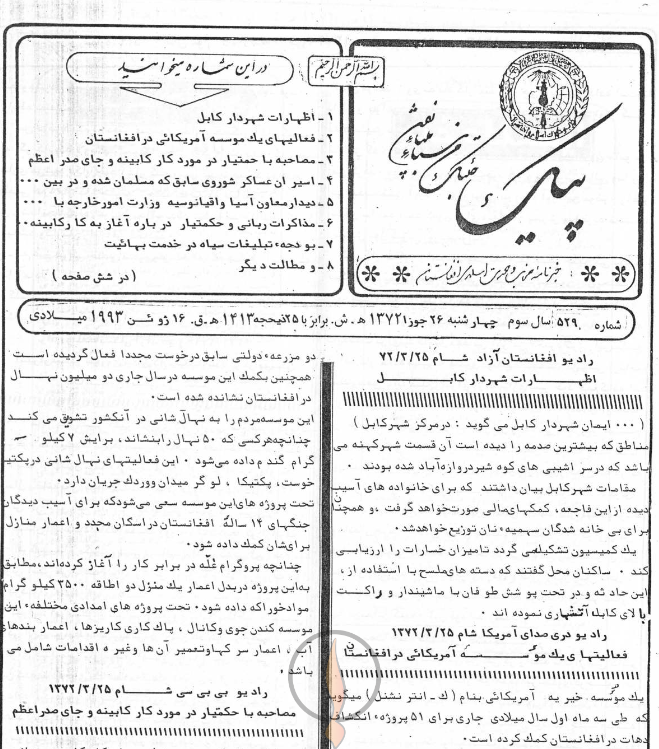 بسم الله الرحمن الرحیم
پیک
در این شماره میخوانید
۱ ـ اظهارات شهردار کابل
۲ ـ فعالیهای یك موسسه آمریکائی درافغانستان
۳ ـ مصاحبه با حمتیار در مورد کار کابینه و جای صدر اعظم
۴ ـ اسیر ان عساکر شوروی سابق که مسلمان شده و در بین ۰۰۰
۵ ـ دیدار معاون آسیا واقیانوسیه وزارت امورخارجه با ۰۰۰
۶ ـ مذاکرات ربانی و حکمتیار در باره آغاز به کا رکابینه۰۰
۷ ـ بو دجهء تبلیغات سیاه در خدمت بهائیت
۸ ـ و مطالت دیگر
( در شش صفحه )
شماره ۵۲۹ سال سوم چهارشنبه ۲۶ جوزا ۱۳۷۲ هـ.ش. برابر با ۲۵ ذیحجه ۱۴۱۳ هـ.ق. ۱۶ ژوئن ۱۹۹۳ میلادی
رادیو افغانستان آزاد شام ۷۲/۳/۲۵
اظهارات شهردار کابل
( ۰۰۰ ایمان شهردار کابل می گوید : درمرکز شهرکابل )
مناطق که بیشترین صدمه را دیده است آن قسمت شهرکهنه می
باشد که درسر اشیبی های کوه شیردروازهآباد شده بودند ۰
مقامات شهرکابل بیان داشتند که برای خانواده های آسیب
دیده ازاین فاجعه، کمکهایمالی صورتخواهد گرفت ،و همچنان
برای بی خانه شدگان سهمیهء نان توزیع خواهدشد۰
یك کمیسیون تشکیلمی گردد تامیزان خسارات را ارزیابی
کند ۰ ساکنان محل گفتند که دسته هایملسح با استفاده از،
این حاد ثه و در تحت پو شش طو فان با ماشیندار و راکت
با لای کابل آتشباری نموده اند ۰
رادیو دری صدای آمریکا شام ۱۳۷۲/۳/۲۵
فعالیتها ی یك مؤسسه آمریکائی در افغانستان
یك موسسه خیر یه آمریکائی بنام ( ك ـ انتر نشنل ) میگوید
که طی سه ماه اول سال میلادی جاری برای ۵۱ پروژهء انکشاف
دهات در افغانستان کمك کرده است۰
دو مزرعهء دولتی سابق درخوست مجددا فعال گردیده است
همچنین بکمك این موسسه درسال جاری دو میلیون نهال
در افغانستان نشانده شده است۰
این موسسهمردم را به نهال شانی در آنکشور تشوق می کند
چنانچه هرکسی که ۵۰ نهال رابنشاند، برایش ۷ کیلو
گرام گند م داده میشود ۰ این فعالیتهای نهال شانی درپکتیا
خوست، پکتیکا ، لو گر میدان ووردك جریان دارد۰
تحت پروژه هایاین موسسه سعی میشودکه برای آسیب دیدگان
جنگهای ۱۴ سالهٔ افغانستان در اسکان مجدد و اعمار منازل
برایشان کمك داده شود۰
چنانچه پروگرام غله در برابر کار را آغاز کردهاند،مطابق
بهاین پروژه دربدل اعمار یك منزل دو اطاقه ۳۵۰۰ کیلو گرام
موادخوراکه داده شود۰ تحت پروژه های امدادی مختلفهء این
موسسه کندن جوی وکانال ، پاك کاری کاریزها، اعمار بندهای
آب ، اعمار سر کهاوتعمیر آن ها وغیر ه اقدامات شامل می
باشد ۰
رادیو بی بی سی شام ۱۳۷۲/۳/۲۵
مصاحبه با حکمتیار در مورد کار کابینه و جای صدراعظم